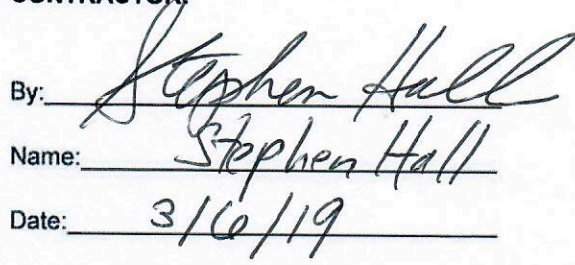 CONTRACTOR:
By: Stephen Hall
Name: Stephen Hall
Date: 3/6/19